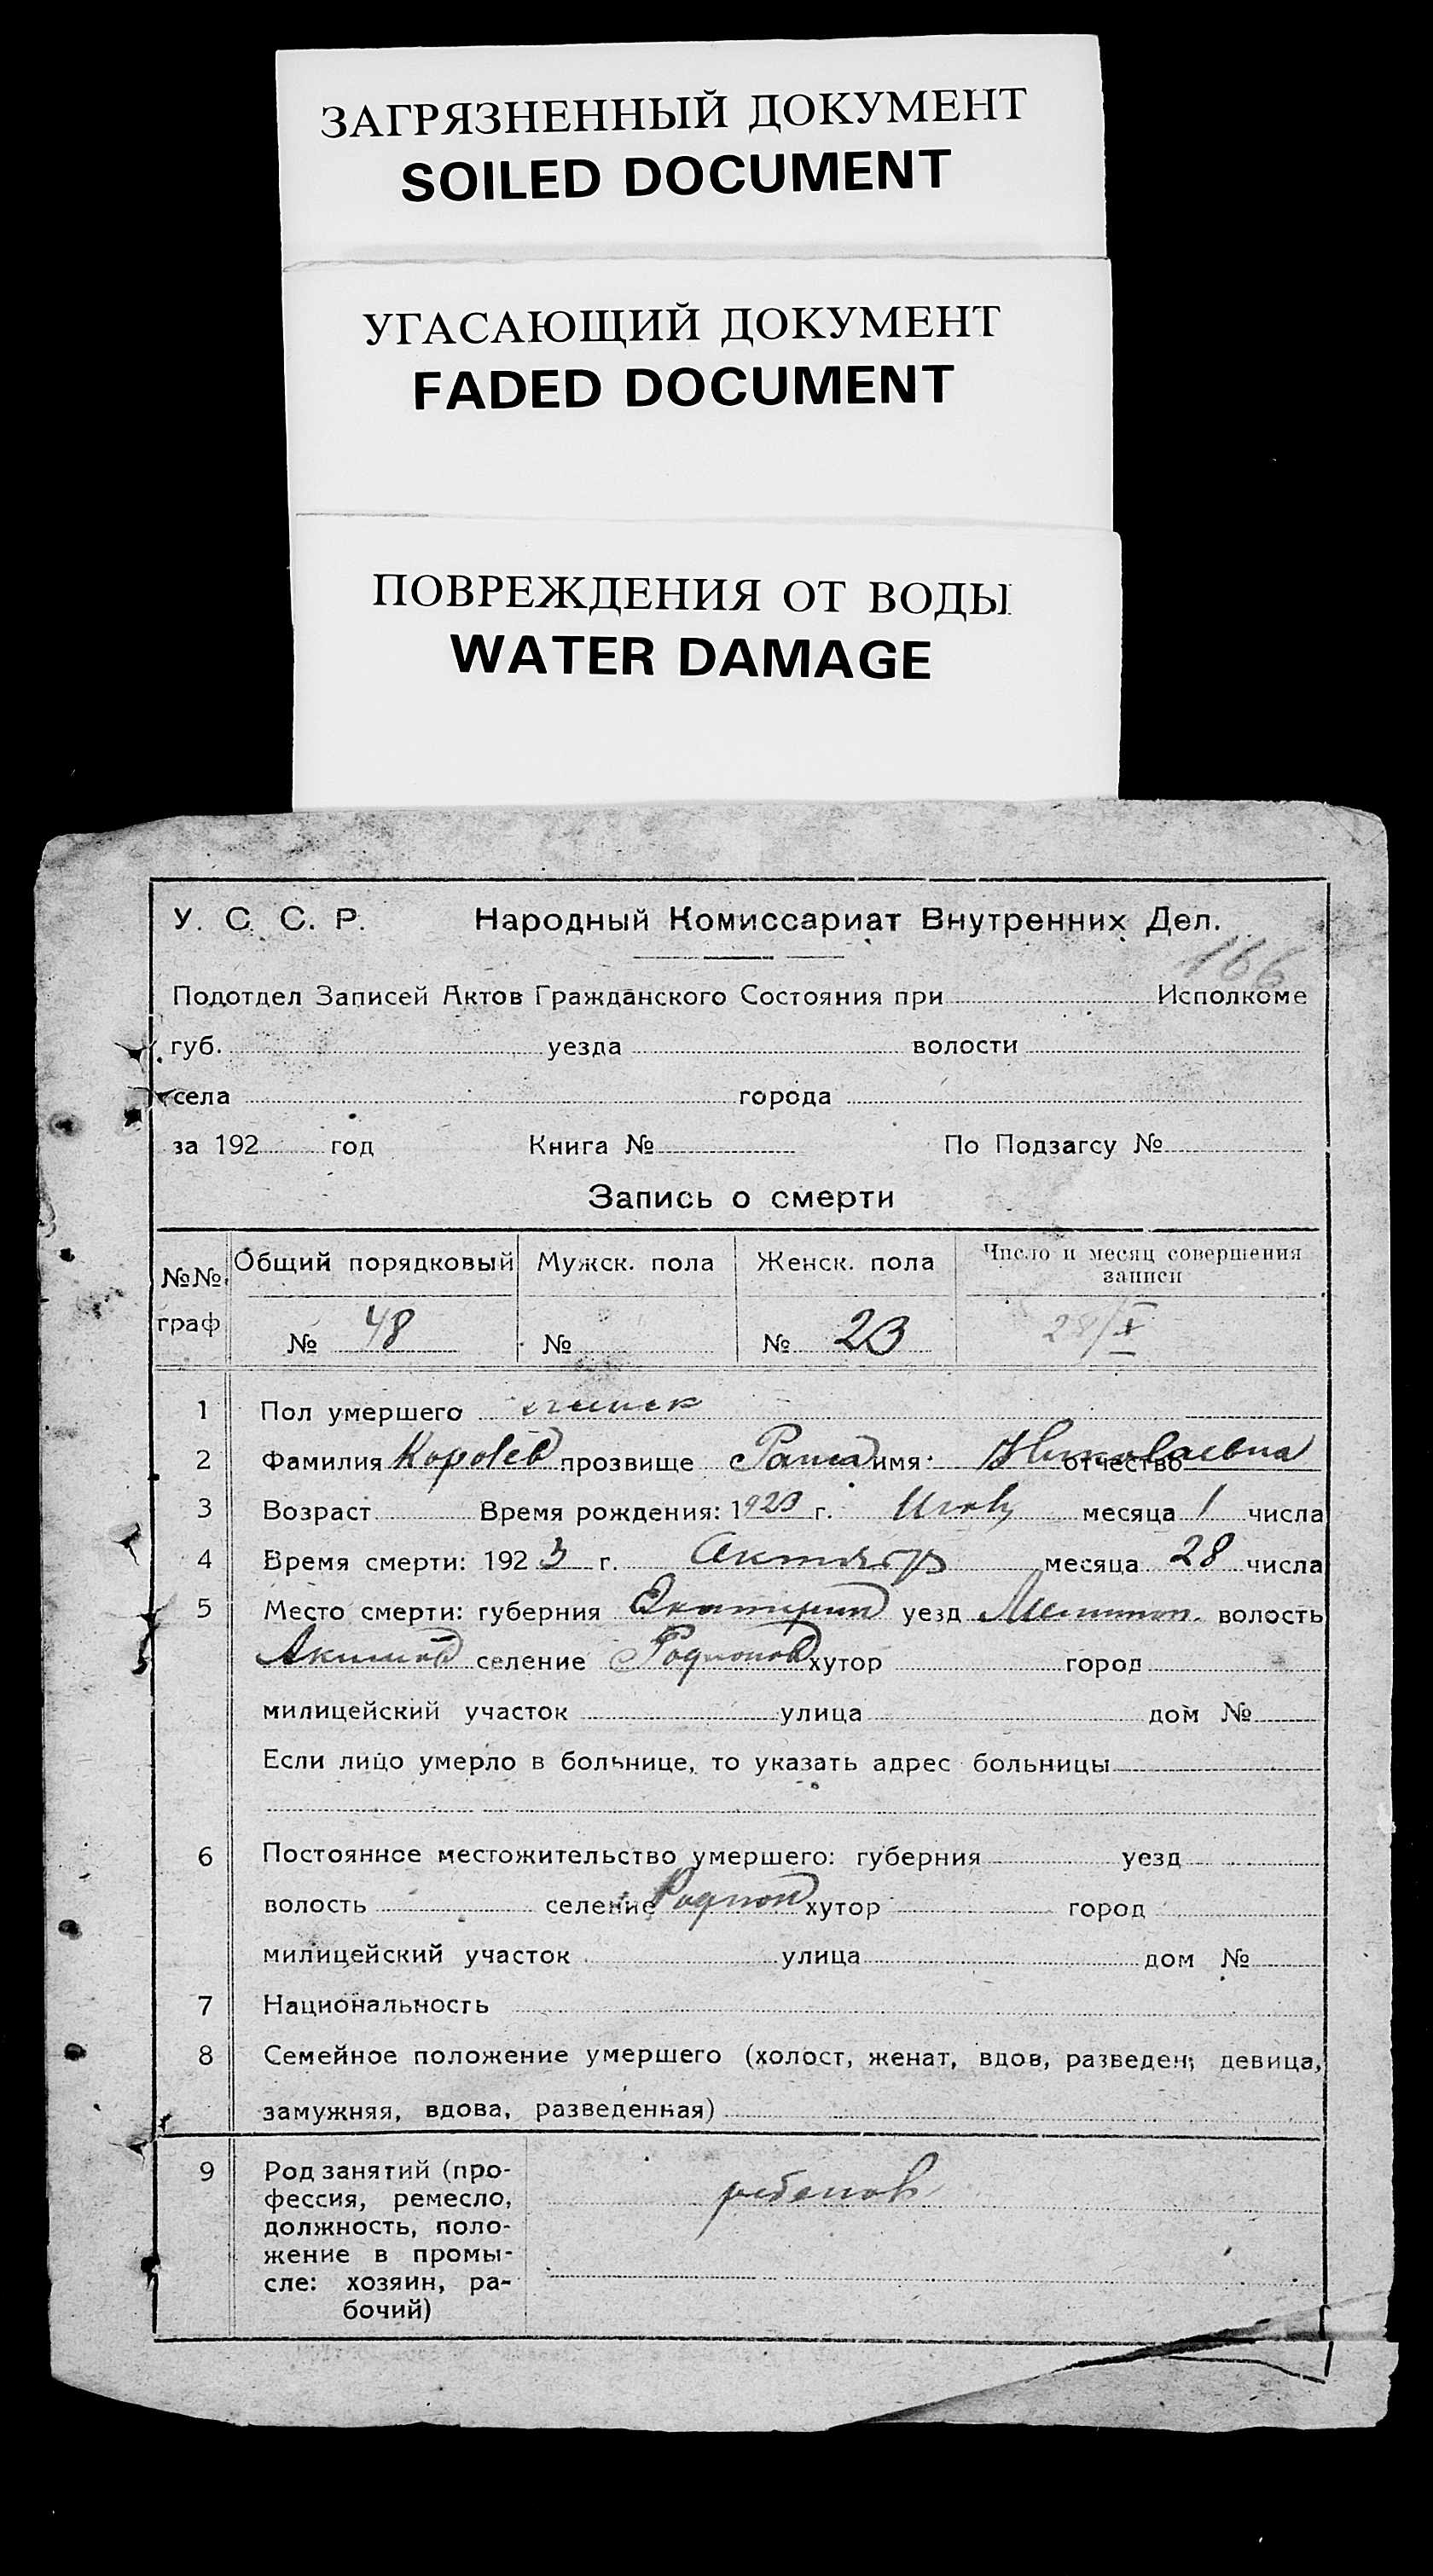 ЗАГРЯЗНЕННЫЙ ДОКУМЕНТ
SOILED DOCUMENT
УГАСАЮЩИЙ ДОКУМЕНТ
FADED DOCUMENT
ПОВРЕЖДЕНИЯ ОТ ВОДЫ
WATER DAMAGE
У. С. С. Р. Народный Комиссариат Внутренних Дел.
166
Подотдел Записей Актов Гражданского Состояния при Исполкоме
губ. уезда волости
села города
за 192 год Книга № По Подзагсу №
Запись о смерти
№№ граф Общий порядковый Мужск. пола Женск. пола Число и месяц совершения записи
№ 48 № № 23 28/X
1 Пол умершего женск
2 Фамилия Королёв прозвище Раиса имя Николаевна отчество
3 Возраст Время рождения: 1923 г. Июль месяца 1 числа
4 Время смерти: 1923 г. Октябр месяца 28 числа
5 Место смерти: губерния Екатерин уезд Мелитоп. волость
Акимов селение Родионов хутор город
милицейский участок улица дом №
Если лицо умерло в больнице, то указать адрес больницы
6 Постоянное местожительство умершего: губерния уезд
волость селение Родион хутор город
милицейский участок улица дом №
7 Национальность
8 Семейное положение умершего (холост, женат, вдов, разведен; девица,
замужняя, вдова, разведенная)
9 Род занятий (про-
фессия, ремесло,
должность, поло-
жение в промы-
сле: хозяин, ра-
бочий)
ребенок